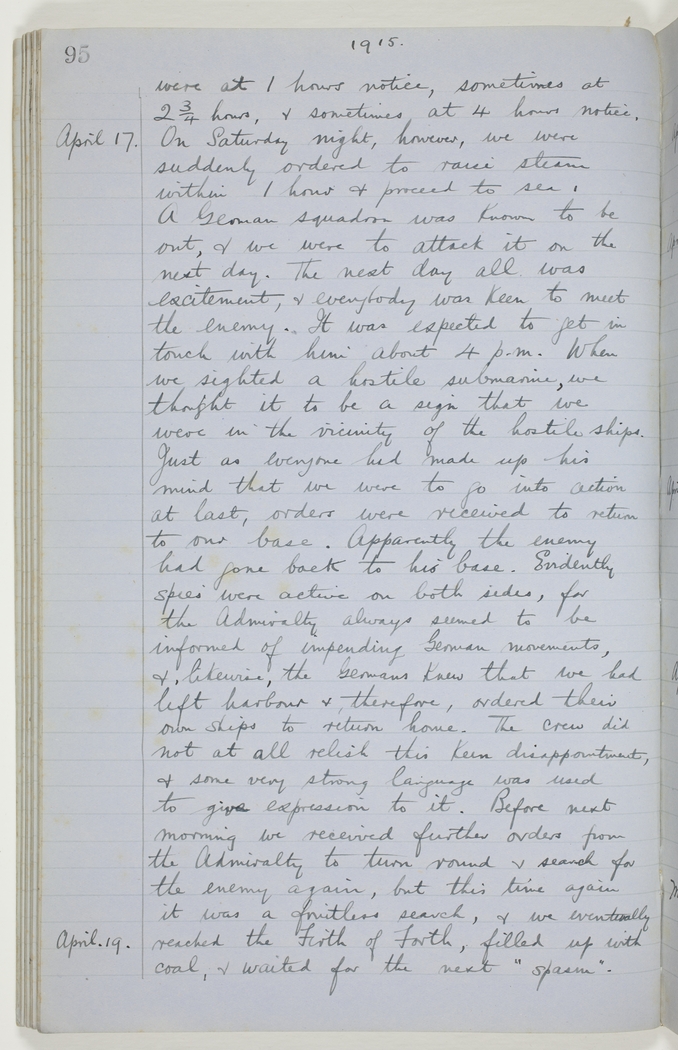 95
1915.
were at 1 hours notice, sometimes at
2 3/4 hours, & sometimes at 4 hours notice.
April 17. On Saturday night, however, we were
suddenly ordered to raise steam
within 1 hour & proceed to sea.
A German squadron was known to be
out, & we were to attack it on the
next day. The next day all was
excitement, & everybody was keen to meet
the enemy. It was expected to get in
touch with him about 4 p.m. When
we sighted a hostile submarine, we
thought it to be a sign that we
were in the vicinity of the hostile ships.
Just as everyone had made up his
mind that we were to go into action
at last, orders were received to return
to our base. Apparently the enemy
had gone back to his base. Evidently
spies were active on both sides, for
the Admiralty always seemed to be
informed of impending German movements,
&, likewise, the Germans knew that we had
left harbour & therefore, ordered their
own ships to return home. The crew did
not at all relish this keen disappointment,
& some very strong language was used
to give expression to it. Before next
morning we received further orders from
the Admiralty to turn round & search for
the enemy again, but this time again
it was a fruitless search, & we eventually
April. 19. reached the Firth of Forth, filled up with
coal, & waited for the next "spasm".